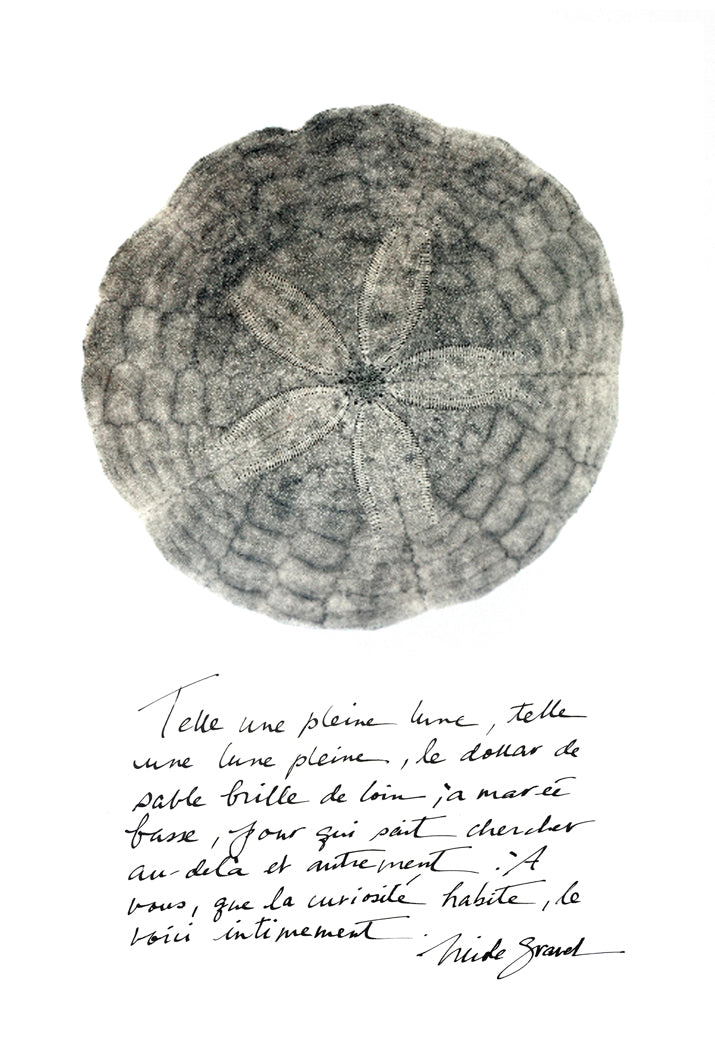 Telle une pleine lune, telle
une lune pleine, le dollar de
sable brille de loin, à marée
basse, pour qui sait chercher
au-delà et autrement. À
vous, que la curiosité habite, le
voici intimement.
Gravel